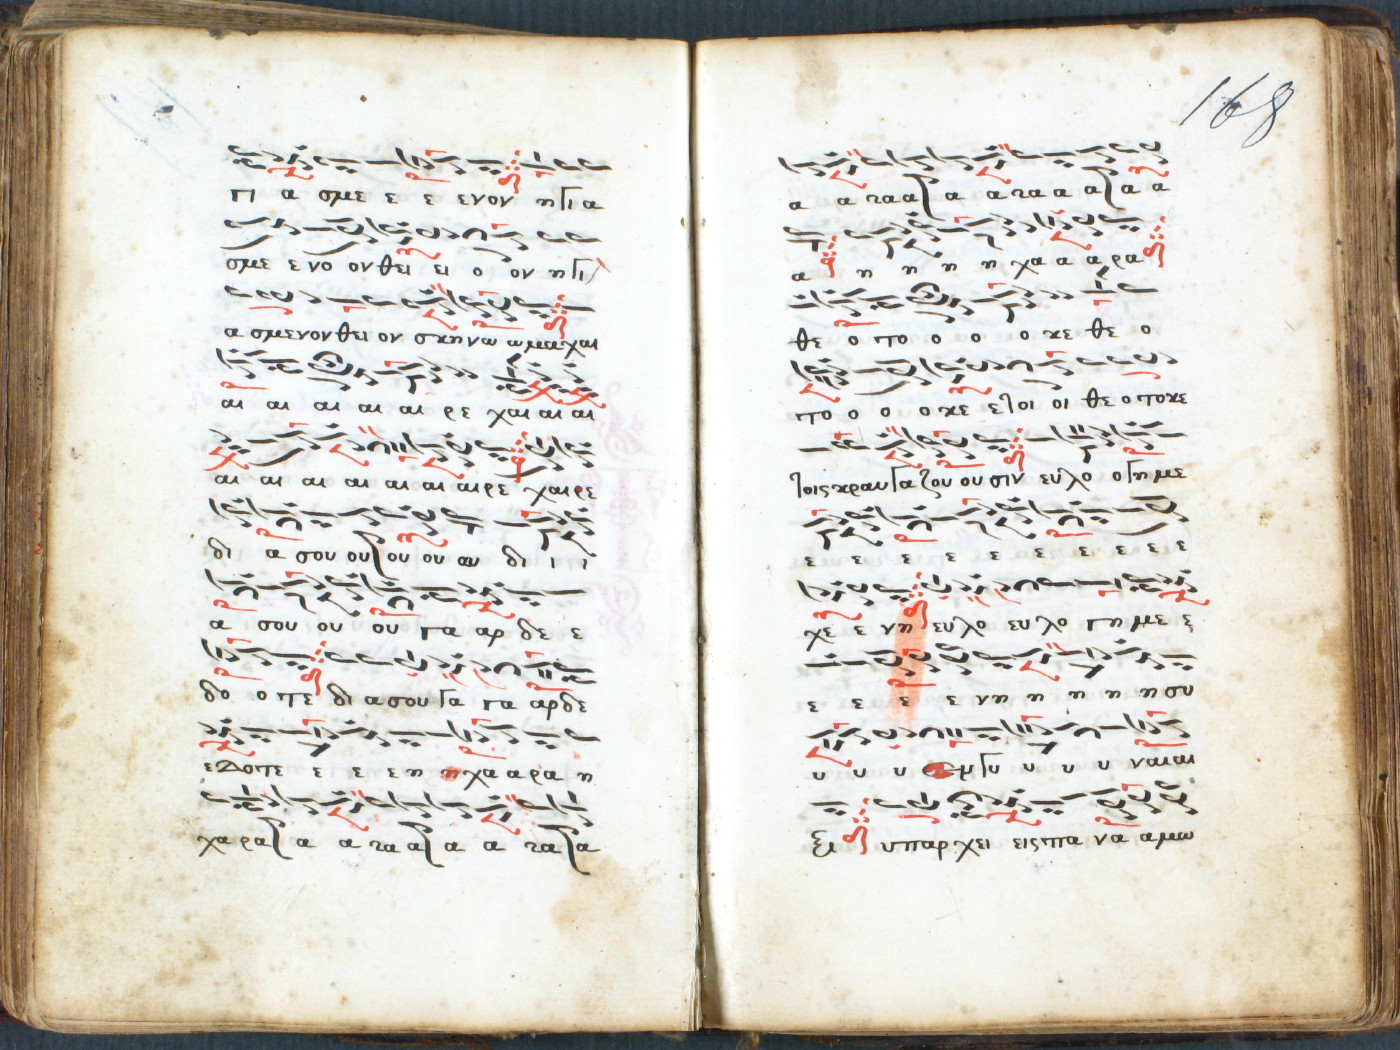 γι α σμε ε ε ενον ητι α
σμε ενο ονθει ει ο ον ητι
α σμενονθει ον σκηνω ωμαχαι
αι αι αι αι αι ρε χαι αι αι
αι αι αι αι αι αι αιρε χαιρε
δι α σου ουζου ου ου δι ι ι
α σου ου ου γα αρ δε ε
δο ο πε δι ασου τα γα αρδε
εδοπε ε ε ε η η χα αρα η
χαραζα α α ταα ζα α α ταζα
168
α α ταα ζα α α τα α α ζα α
α η η η η χα α α ρα
θε ο το ο ο ο κε θε ο
το ο ο ο κε ετοι οι θε οτοκε
τοις κραυγαζου ου σιν ευλο ογημε
ε ε ε ε ε ε ε ε ε
χε ε νη ευλο ευλο γημε ε
ε ε ε ε νη η η η η συ
υ υ υ υ υ υ υ ναιαι
ξι υπαρχει εισπα να αμω